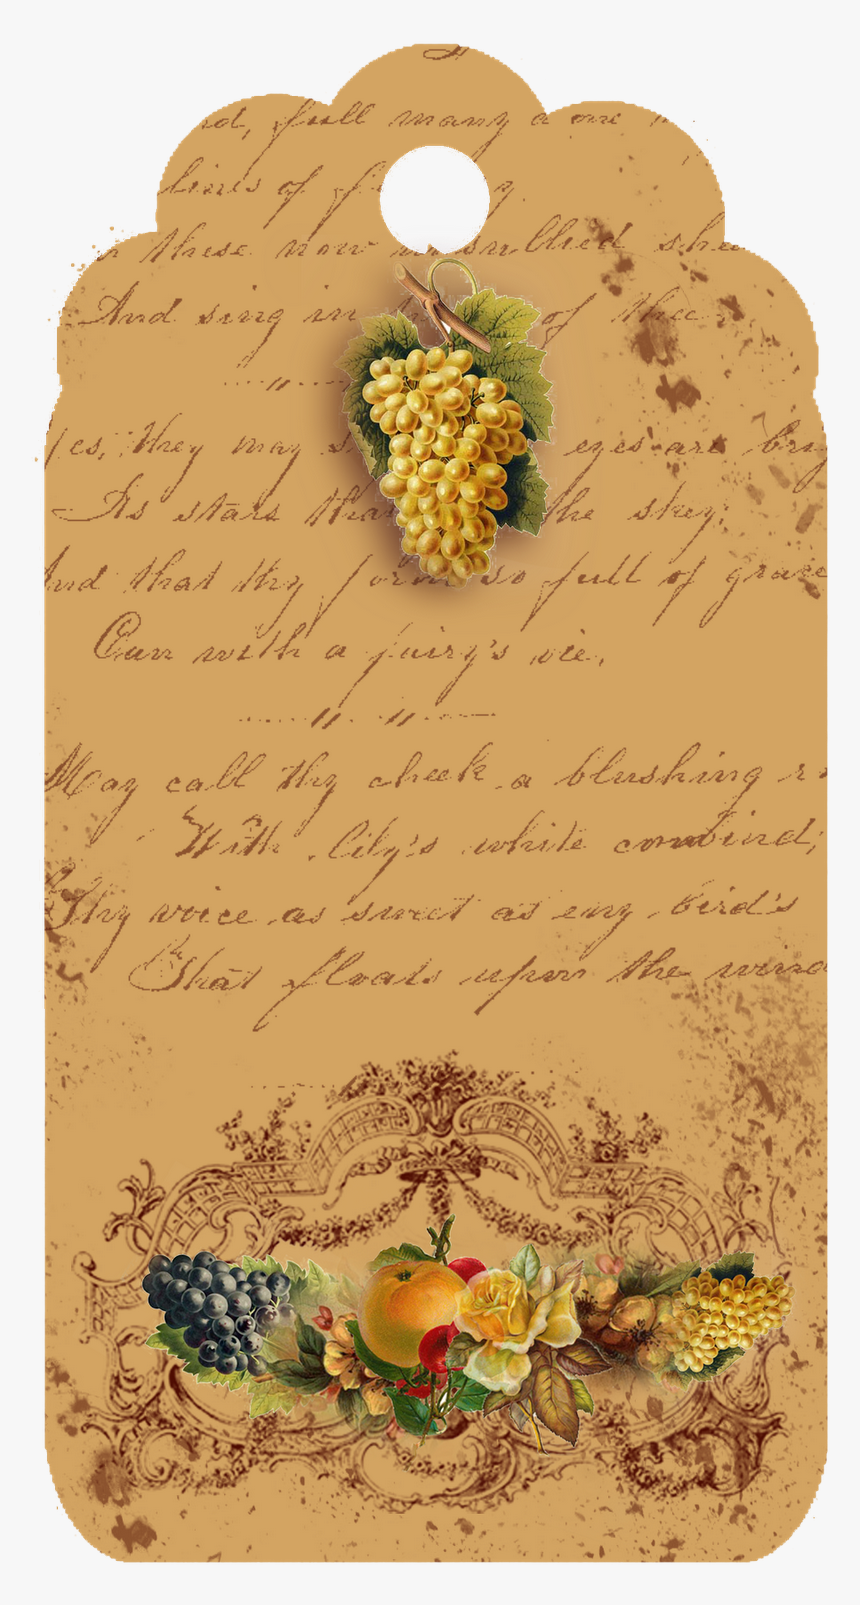 full many a one
lines of
these now unsullied
And sing in of thee
they may eyes are
As stars the sky,
that thy form so full of grace
Can with a fairy's vie.
May call thy cheek a blushing
With lily's white combind;
Thy voice as sweet as any bird's
That floats upon the wind